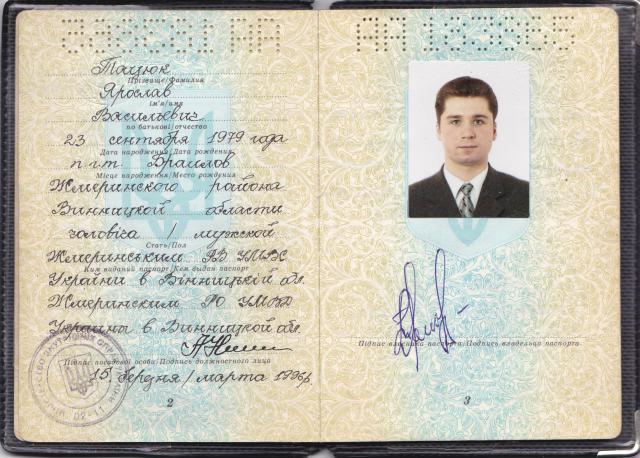 Тацюк
Прізвище/Фамилия
Ярослав
ім'я/имя
Васильевич
по батькові/отчество
23 сентября 1979 года
Дата народження/Дата рождения
п.г.т. Браилов
Місце народження/Место рождения
Жмеринского района
Винницкой области
чоловіча / мужской
Стать/Пол
Жмеринським РВ УМВС
Ким виданий паспорт/Кем выдан паспорт
України в Вінницькій обл.
Жмеринским РО УМВД
Украины в Винницкой обл.
Підпис посадової особи/Подпись должностного лица
15 березня / марта 1996р.
2
Підпис власника паспорта/Подпись владельца паспорта
3